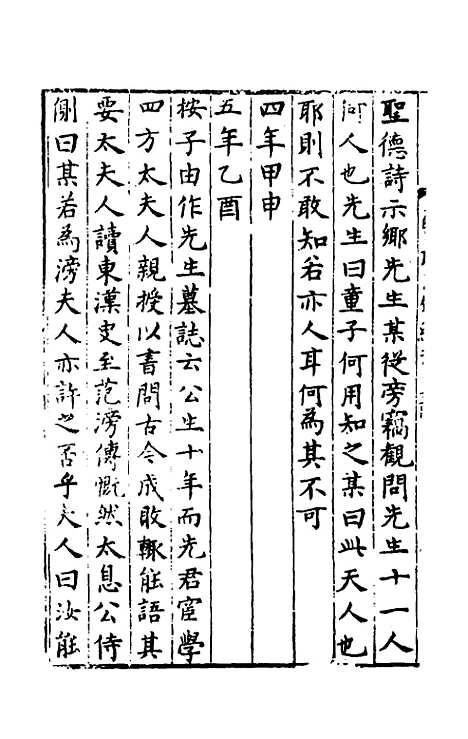 聖德詩示鄉先生某從旁竊觀問先生十一人
何人也先生曰童子何用知之某曰此天人也
耶則不敢知若亦人耳何爲其不可
四年甲申
五年乙酉
按子由作先生墓誌云公生十年而先君宦學
四方太夫人親授以書問古今成敗輒能語其
要太夫人讀東漢史至范滂傳慨然太息公侍
側曰某若爲滂夫人亦許之否乎夫人曰汝能